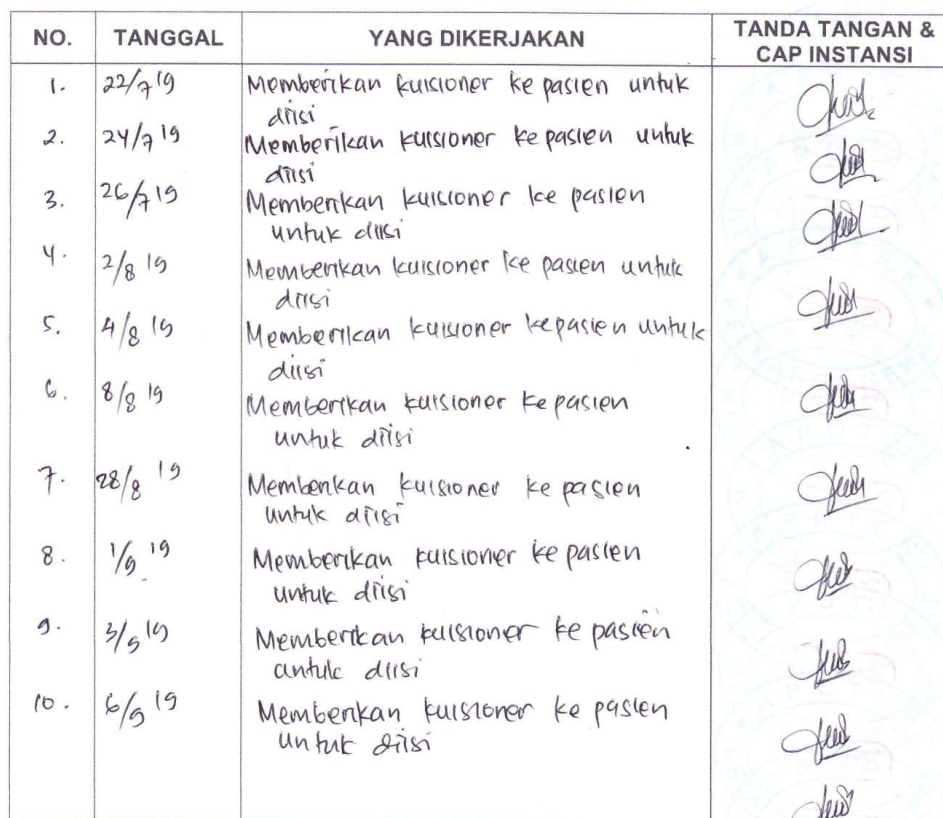 NO. TANGGAL YANG DIKERJAKAN TANDA TANGAN &
CAP INSTANSI
1. 22/7 19 Memberikan kuisioner ke pasien untuk
diisi
2. 24/7 19 Memberikan kuisioner ke pasien untuk
diisi
3. 26/7 19 Memberikan kuisioner ke pasien
untuk diisi
4. 2/8 19 Memberikan kuisioner ke pasien untuk
diisi
5. 4/8 19 Memberikan kuisioner ke pasien untuk
diisi
6. 8/8 19 Memberikan kuisioner ke pasien
untuk diisi
7. 28/8 19 Memberikan kuisioner ke pasien
untuk diisi
8. 1/9 19 Memberikan kuisioner ke pasien
untuk diisi
9. 3/9 19 Memberikan kuisioner ke pasien
untuk diisi
10. 6/9 19 Memberikan kuisioner ke pasien
untuk diisi